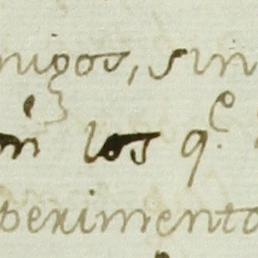 migos, sin
on los q.e
perimento